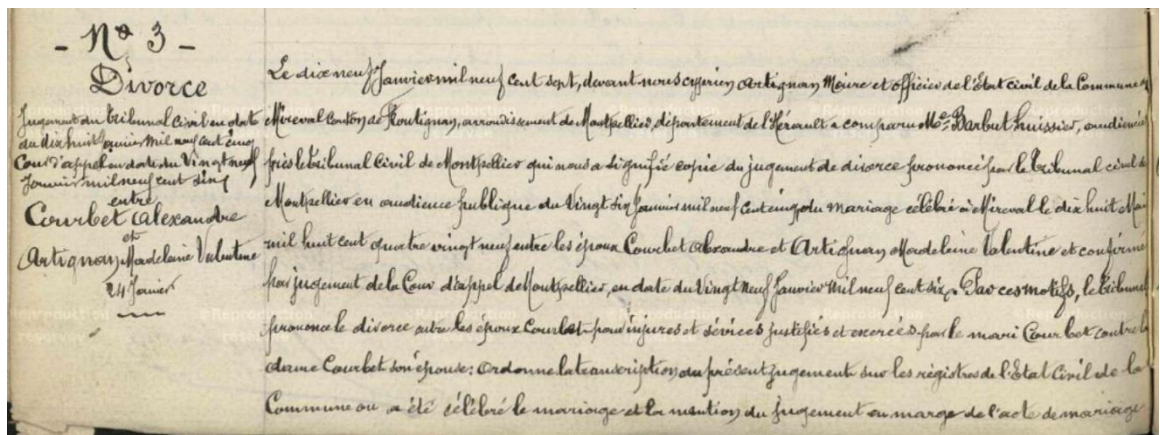 - Nº 3 -
Divorce
Jugement du tribunal civil en date
du dix huit Janvier mil neuf cent cinq
Cour d'appel en date du Vingt neuf
Janvier mil neuf cent six
entre
Courbet Alexandre
et
Artignan Madeleine Valentine
24 Janvier
Le dix neuf Janvier mil neuf cent sept, devant nous Cyprien Artignan Maire et officier de l'Etat civil de la Commune de
Mireval Canton de Frontignan, arrondissement de Montpellier, département de l'Hérault a comparu Me Barbut huissier, audiencier
près le tribunal Civil de Montpellier qui nous a signifié copie du jugement de divorce prononcé par le tribunal civil de
Montpellier en audience publique du Vingt six Janvier mil neuf cent cinq, du mariage célébré à Mireval le dix huit Mai
mil huit cent quatre vingt neuf entre les époux Courbet Alexandre et Artignan Madeleine Valentine et confirmé
par jugement de la Cour d'appel de Montpellier, en date du Vingt Neuf Janvier Mil neuf cent six. Par ces motifs, le Tribunal
prononce le divorce entre les époux Courbet pour injures et sévices justifiés et exercés par le mari Courbet contre la
dame Courbet son épouse: Ordonne la transcription du présent jugement sur les régistres de l'Etat Civil de la
Commune ou a été célébré le mariage et la mention du jugement en marge de l'acte de mariage